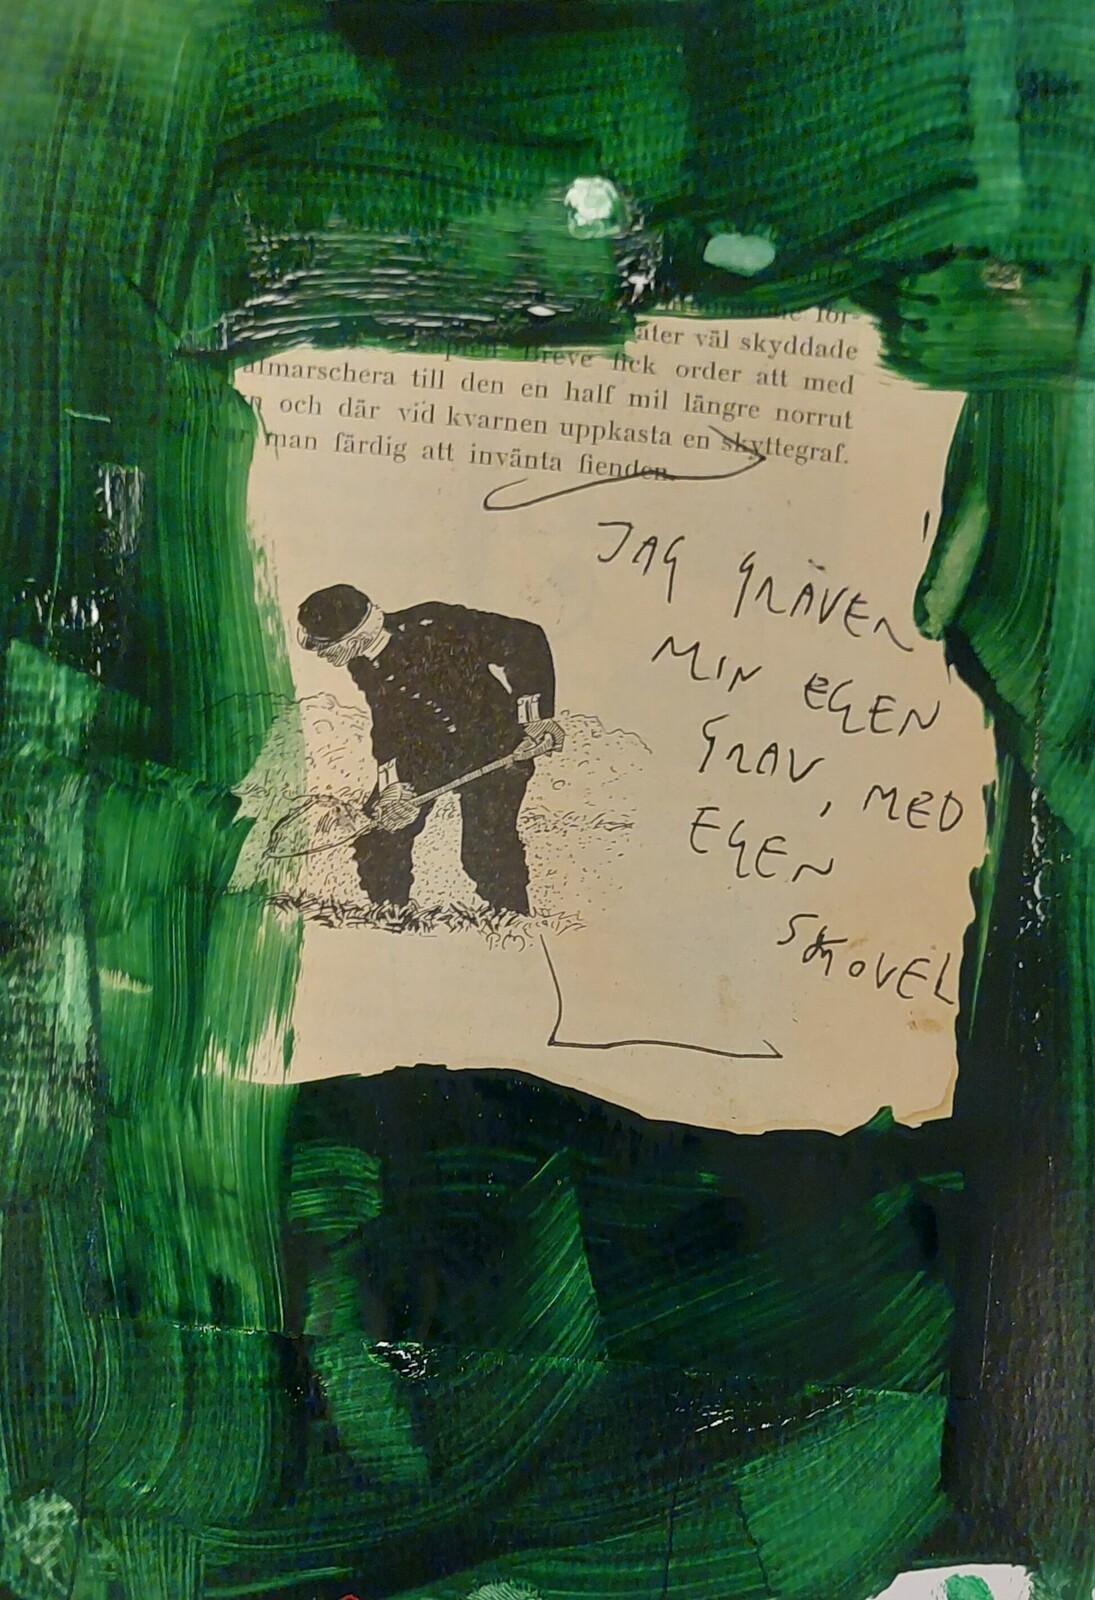 för-
åter väl skyddade
Breve fick order att med
almarschera till den en half mil längre norrut
och där vid kvarnen uppkasta en skyttegraf.
man färdig att invänta fienden.
JAG GRÄVER
MIN EGEN
GRAV, MED
EGEN
SKOVEL